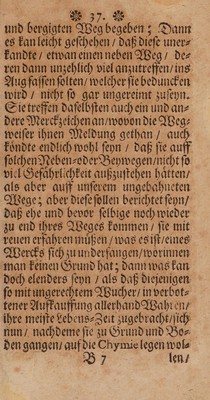 37.
und bergigten Weg begeben; Dann
es kan leicht geschehen / daß diese uner-
kandte / etwan einen neben Weg / de-
ren dann unzehlich viel anzutreffen / ins
Aug fassen solten / welcher sie beduncken
wird / nicht so gar ungereimt zuseyn.
Sie treffen daselbsten auch ein und an-
dere Merckzeichen an / wovon die Weg-
weiser ihnen Meldung gethan / auch
köndte endlich wohl seyn / daß sie auff
solchen Neben- oder Beywegen / nicht so
viel Gefährlichkeit außzustehen hätten /
als aber auff unserem ungebahneten
Wege; aber diese sollen berichtet seyn /
daß ehe und bevor selbige noch wieder
zu end ihres Weges kommen / sie mit
reuen erfahren müßen / was es ist / eines
Wercks sich zu underfangen / worinnen
man keinen Grund hat; dann was kan
doch elenders seyn / als daß diejenigen
so mit ungerechtem Wucher / in verbot-
tener Auffkauffung allerhand Wahren /
ihre meiste Lebens-Zeit zugebracht / sich
nun / nachdeme sie zu Grund und Bo-
den gangen / auf die Chymie legen wol-
B 7 len /